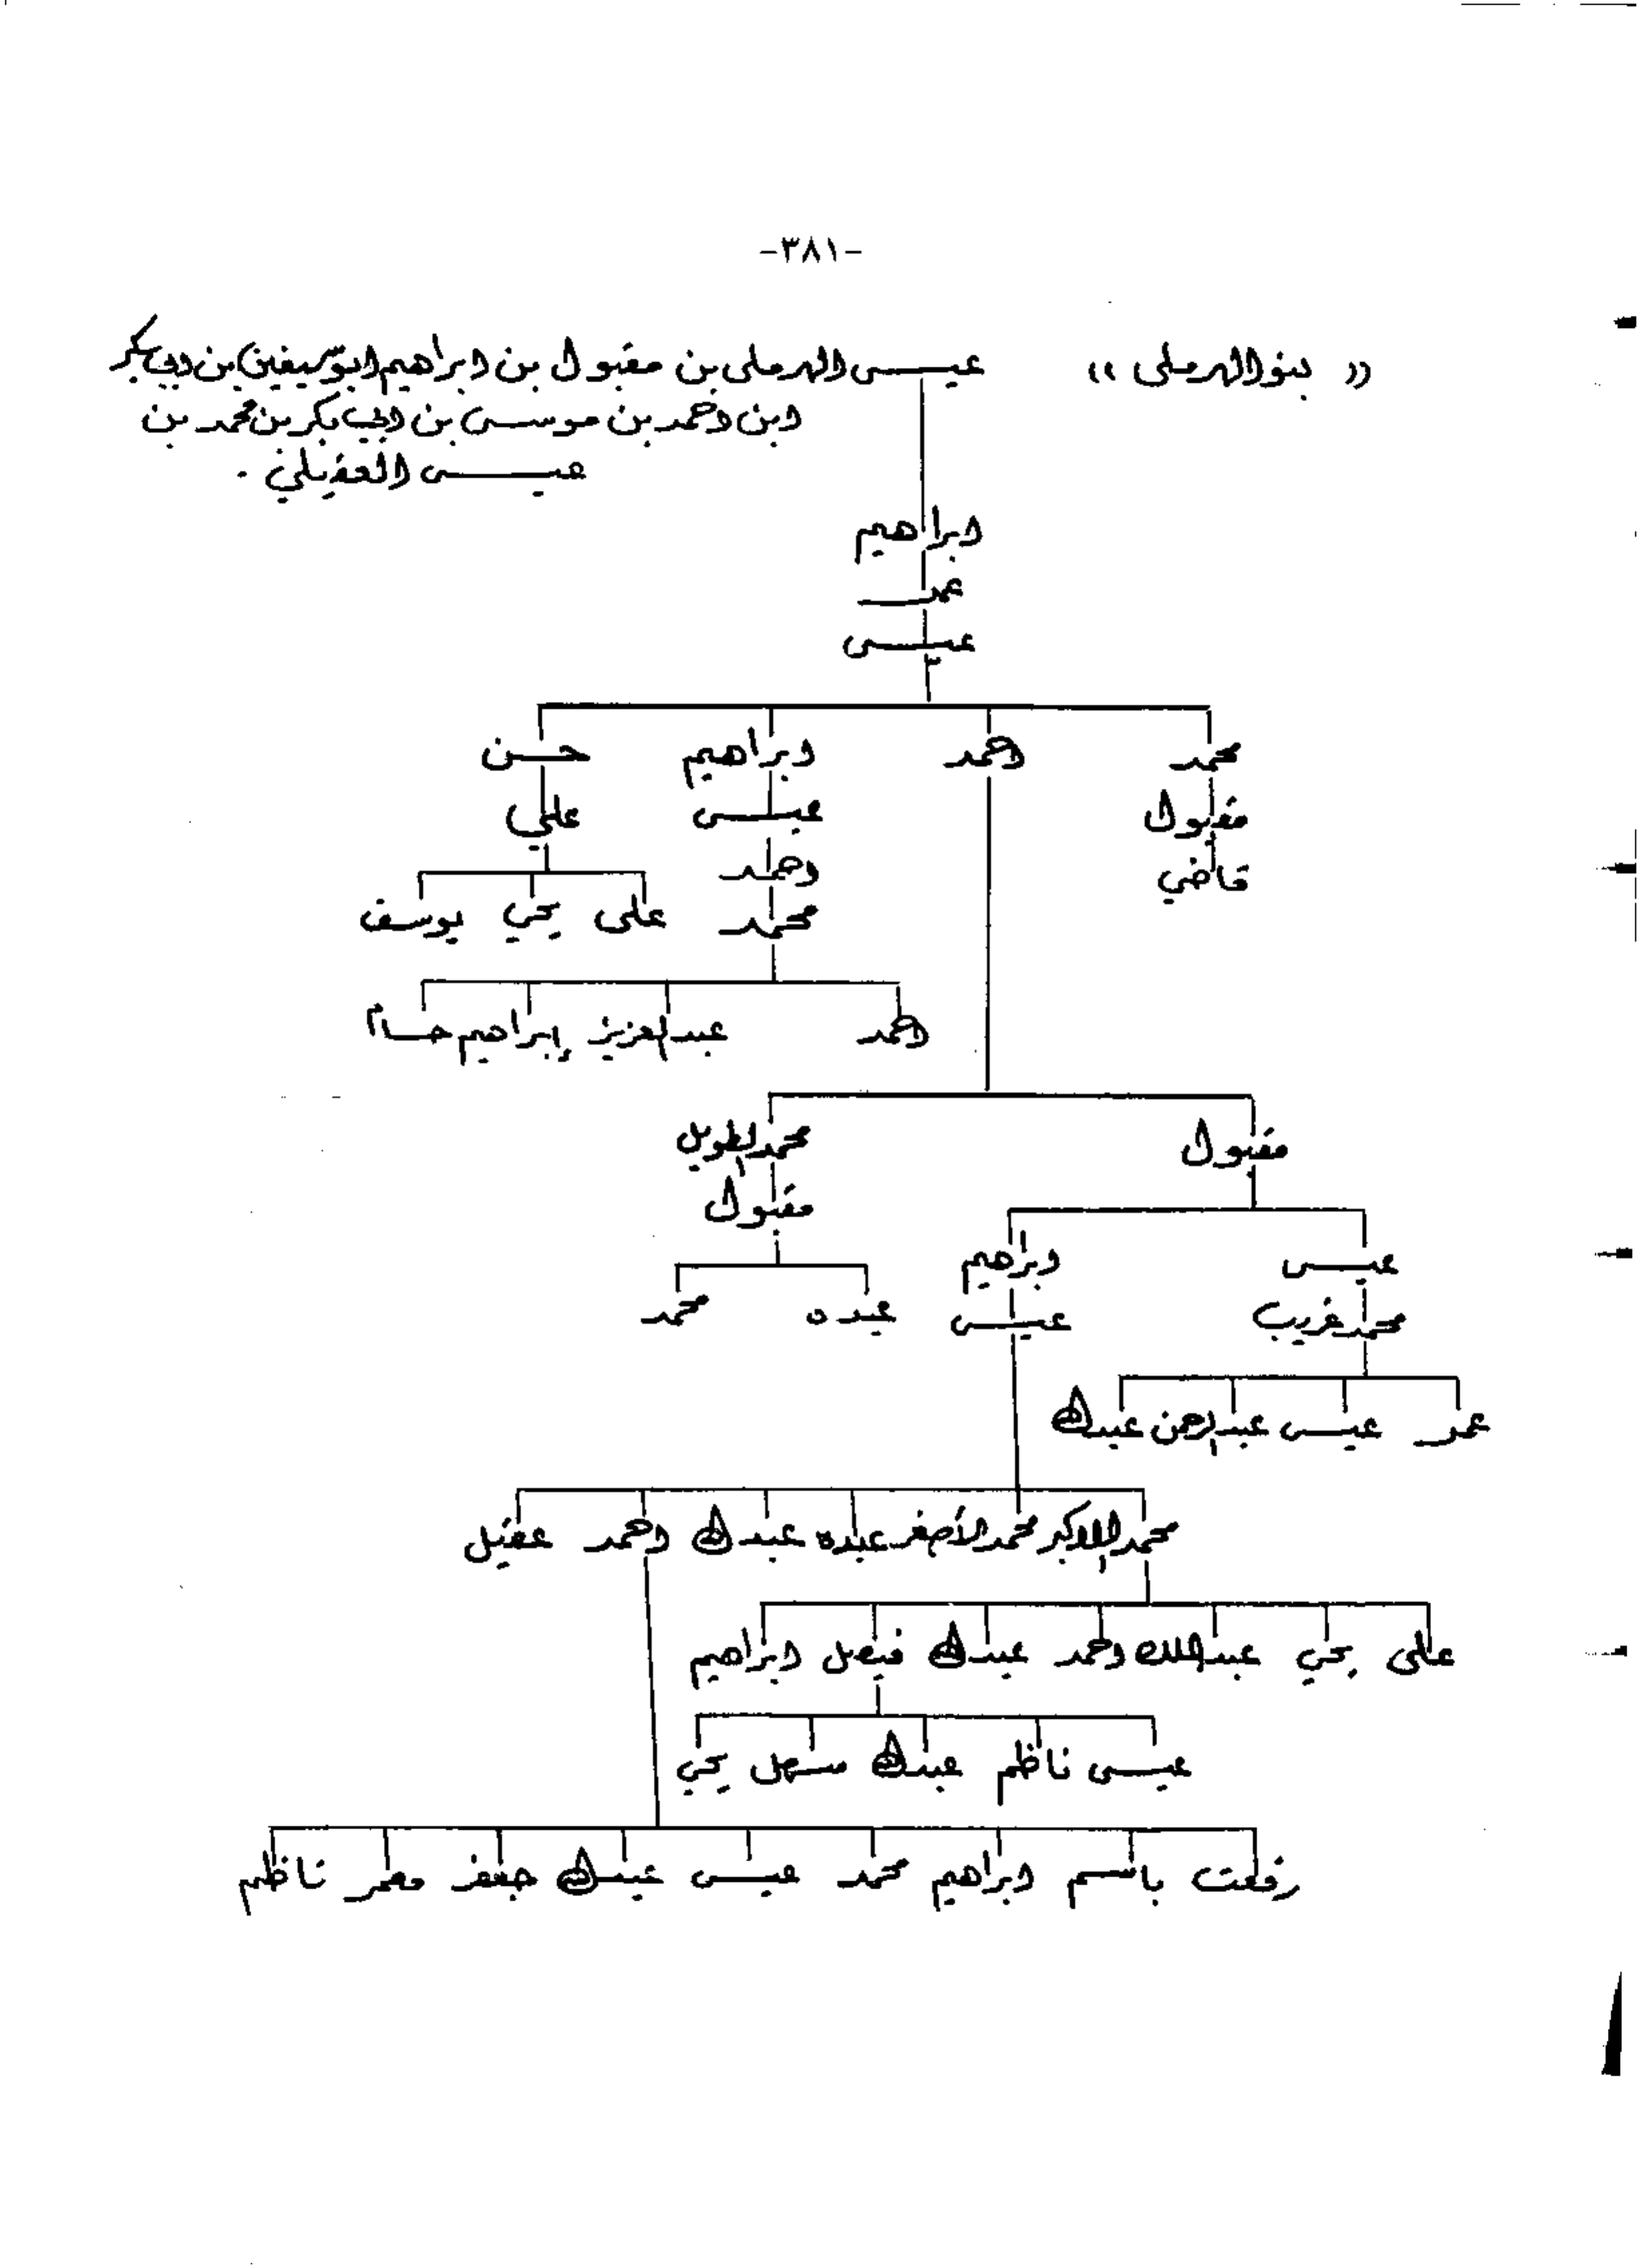 -٣٨١-
« بنو الهرملى » عيسى الهرملى بن مقبول بن ابراهيم ابو سيفين بن ابي بكر
ابن احمد بن موسى بن ابي بكر بن محمد بن
عيسى العقيلي .
ابراهيم
عمر
عيسى
محمد احمد ابراهيم حسن
مقبول عيسى علي
قاضي احمد
محمد على يحي يوسف
احمد عبدالعزيز إبراهيم حسام
مقبول محمد الطويل
مقبول
عيسى ابراهيم
محمد غريب عيسى عبده محمد
عمر عيسى عبدالرحمن عبدالله
محمد الاكبر محمد الأصغر عبده عبدالله احمد عقيل
على يحي عبدالملك احمد عبدالله فيصل ابراهيم
عيسى ناظم عبدالله سهل يحي
رفعت باسم ابراهيم محمد عيسى عبدالله جعفر معمر ناظم